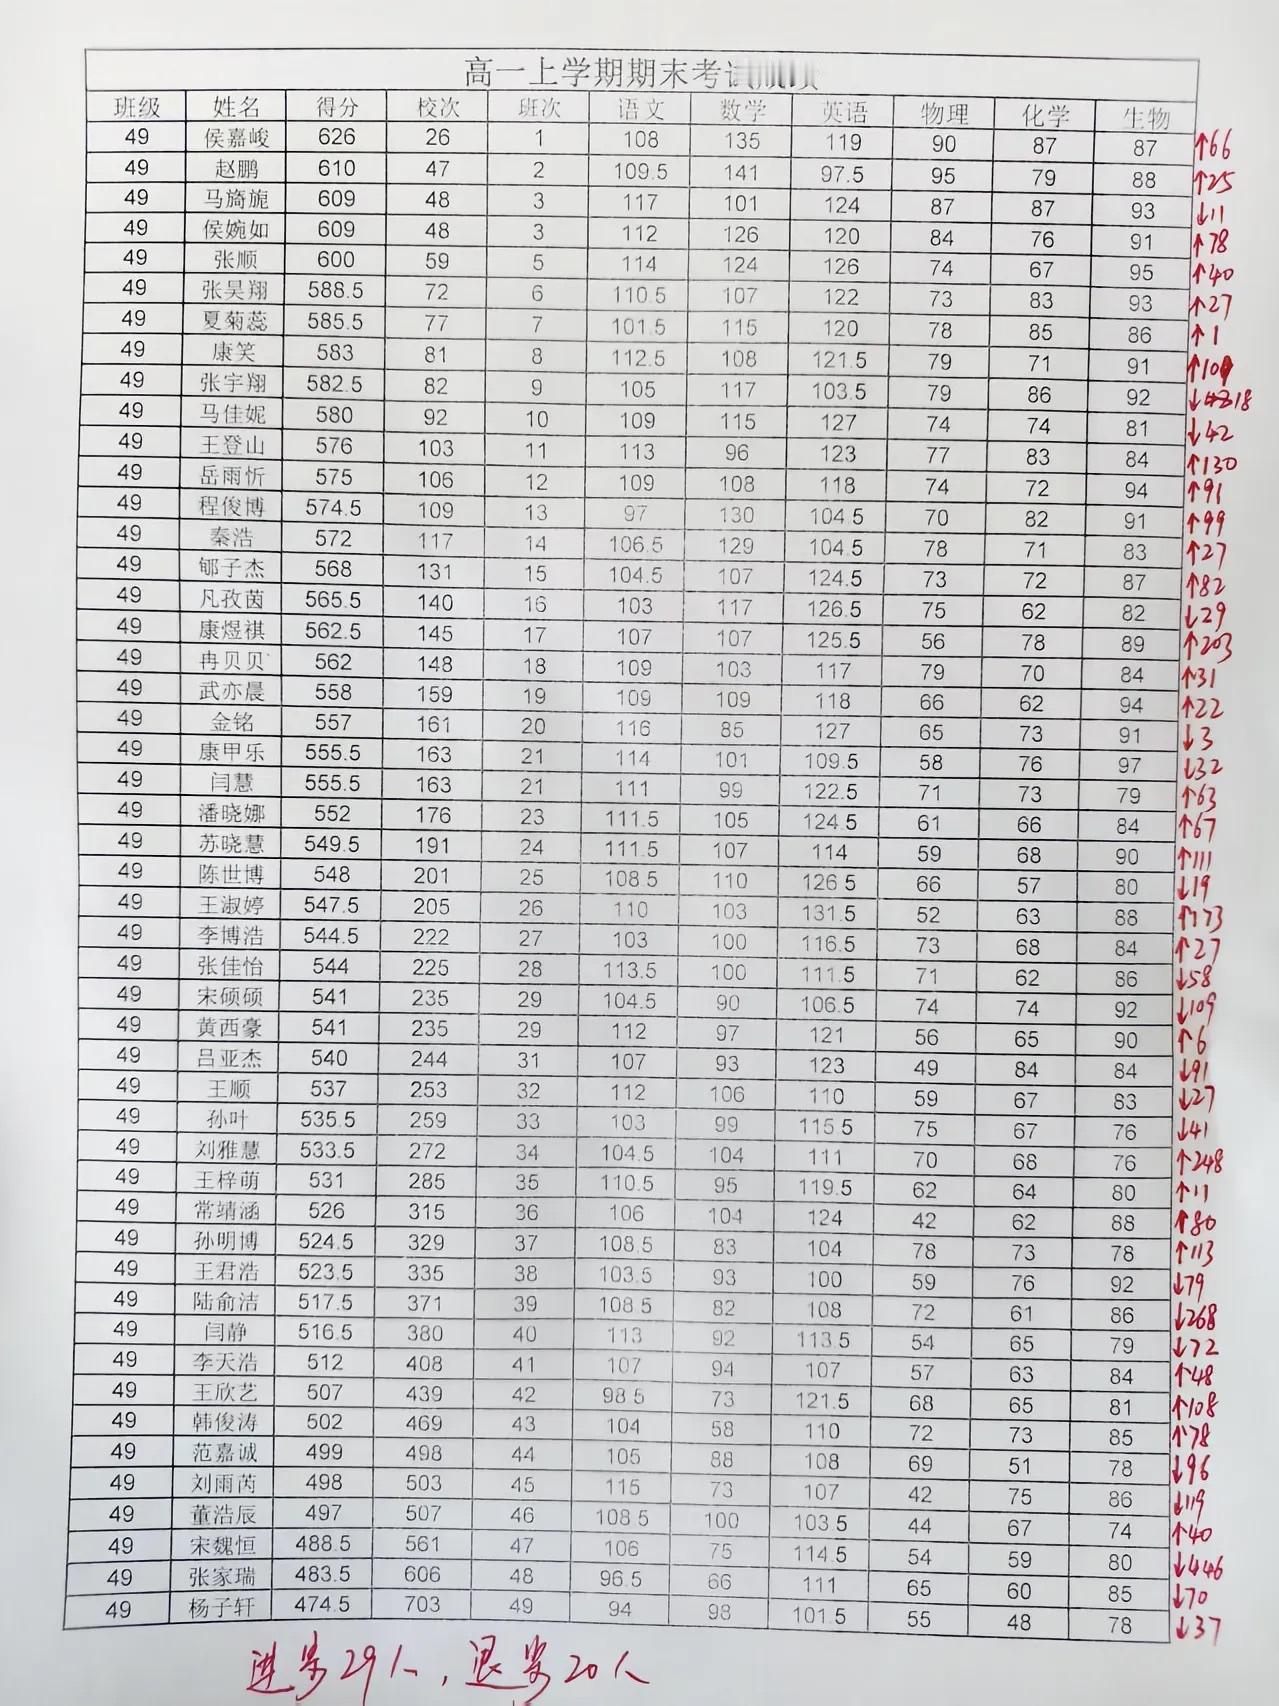 高一上学期期末考试
班级 姓名 得分 校次 班次 语文 数学 英语 物理 化学 生物
49 侯嘉峻 626 26 1 108 135 119 90 87 87 ↑66
49 赵鹏 610 47 2 109.5 141 97.5 95 79 88 ↑25
49 马旖旎 609 48 3 117 101 124 87 87 93 ↓11
49 侯婉如 609 48 3 112 126 120 84 76 91 ↑78
49 张顺 600 59 5 114 124 126 74 67 95 ↑40
49 张昊翔 588.5 72 6 110.5 107 122 73 83 93 ↑27
49 夏菊蕊 585.5 77 7 101.5 115 120 78 85 86 ↑1
49 康笑 583 81 8 112.5 108 121.5 79 71 91
49 张宇翔 582.5 82 9 105 117 103.5 79 86 92 ↓18
49 马佳妮 580 92 10 109 115 127 74 74 81 ↓42
49 王登山 576 103 11 113 96 123 77 83 84 ↑130
49 岳雨忻 575 106 12 109 108 118 74 72 94 ↑91
49 程俊博 574.5 109 13 97 130 104.5 70 82 91 ↑99
49 秦浩 572 117 14 106.5 129 104.5 78 71 83 ↑27
49 郇子杰 568 131 15 104.5 107 124.5 73 72 87 ↑82
49 凡孜茵 565.5 140 16 103 117 126.5 75 62 82 ↓29
49 康煜祺 562.5 145 17 107 107 125.5 56 78 89 ↑203
49 冉贝贝 562 148 18 109 103 117 79 70 84 ↑31
49 武亦晨 558 159 19 109 109 118 66 62 94 ↑22
49 金铭 557 161 20 116 85 127 65 73 91 ↓3
49 康甲乐 555.5 163 21 114 101 109.5 58 76 97 ↓32
49 闫慧 555.5 163 21 111 99 122.5 71 73 79 ↑63
49 潘晓娜 552 176 23 111.5 105 124.5 61 66 84 ↑67
49 苏晓慧 549.5 191 24 111.5 107 114 59 68 90 ↑111
49 陈世博 548 201 25 108.5 110 126.5 66 57 80 ↓19
49 王淑婷 547.5 205 26 110 103 131.5 52 63 88 ↑173
49 李博浩 544.5 222 27 103 100 116.5 73 68 84 ↑27
49 张佳怡 544 225 28 113.5 100 111.5 71 62 86 ↓58
49 宋硕硕 541 235 29 104.5 90 106.5 74 74 92 ↓109
49 黄西豪 541 235 29 112 97 121 56 65 90 ↑6
49 吕亚杰 540 244 31 107 93 123 49 84 84 ↓91
49 王顺 537 253 32 112 106 110 59 67 83 ↓27
49 孙叶 535.5 259 33 103 99 115.5 75 67 76 ↓41
49 刘雅慧 533.5 272 34 104.5 104 111 70 68 76 ↑248
49 王梓萌 531 285 35 110.5 95 119.5 62 64 80 ↑11
49 常靖涵 526 315 36 106 104 124 42 62 88 ↑80
49 孙明博 524.5 329 37 108.5 83 104 78 73 78 ↑113
49 王君浩 523.5 335 38 103.5 93 100 59 76 92 ↓79
49 陆俞洁 517.5 371 39 108.5 82 108 72 61 86 ↓268
49 闫静 516.5 380 40 113 92 113.5 54 65 79 ↓72
49 李天浩 512 408 41 107 94 107 57 63 84 ↑48
49 王欣艺 507 439 42 98.5 73 121.5 68 65 81 ↑108
49 韩俊涛 502 469 43 104 58 110 72 73 85 ↑78
49 范嘉诚 499 498 44 105 88 108 69 51 78 ↓96
49 刘雨芮 498 503 45 115 73 107 42 75 86 ↓119
49 董浩辰 497 507 46 108.5 100 103.5 44 67 74 ↑40
49 宋魏恒 488.5 561 47 106 75 114.5 54 59 80 ↓446
49 张家瑞 483.5 606 48 96.5 66 111 65 60 85 ↓70
49 杨子轩 474.5 703 49 94 98 101.5 55 48 78 ↓37
进步29人，退步20人